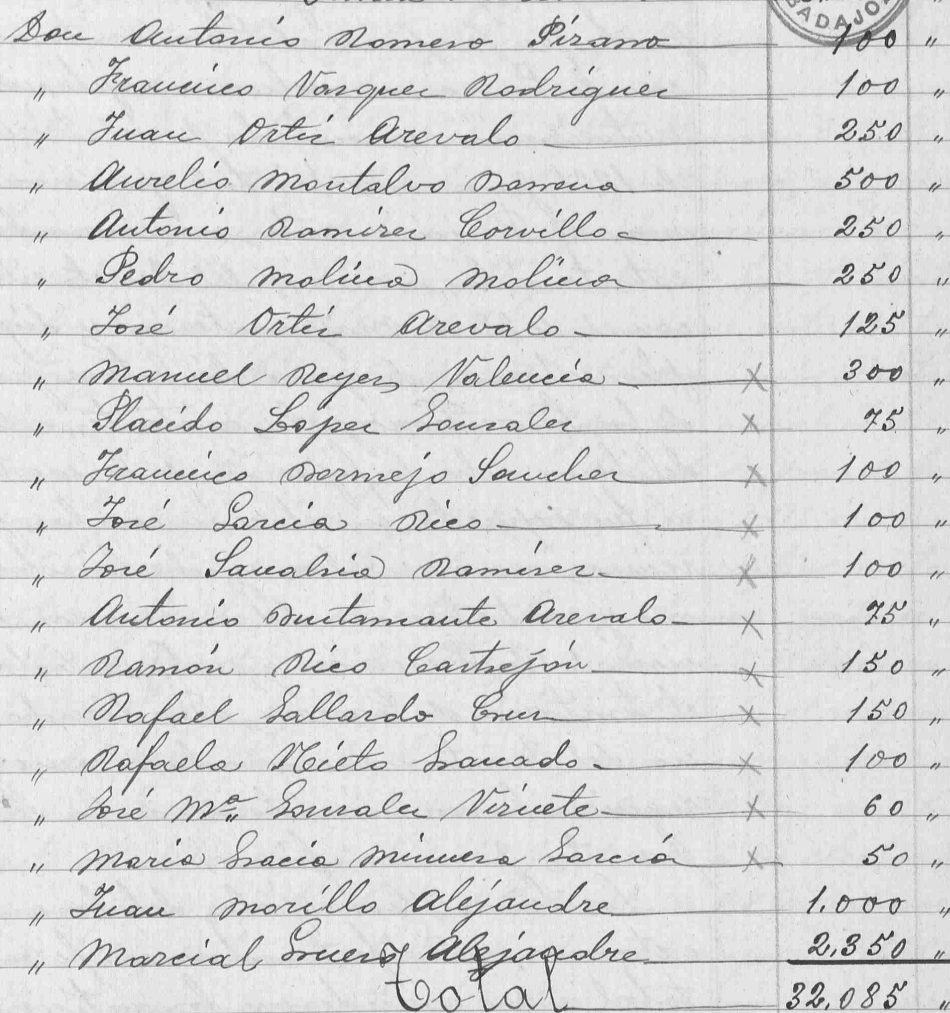 BADAJOZ
Don Antonio Romero Pizano 100 "
" Francisco Vasquez Rodriguez 100 "
" Juan Ortiz Arevalo 250 "
" Aurelio Montalvo Barrena 500 "
" Antonio Ramirez Corvillo 250 "
" Pedro Molina Molina 250 "
" José Ortiz Arevalo 125 "
" Manuel Reyes Valencia x 300 "
" Placido Lopez Gonzalez x 75 "
" Francisco Bermejo Sanchez x 100 "
" José Garcia Rico x 100 "
" José Ramirez x 100 "
" Antonio Bustamante Arevalo x 75 "
" Ramón Rico Castrejón x 150 "
" Rafael Gallardo Cruz x 150 "
" Rafaela Nieto Granado x 100 "
" José Mª Gonzalez Viriuete x 60 "
" Maria Gracia Minuesa Garcia x 50 "
" Juan Morillo Alejandre 1.000 "
" Marcial Alejandre 2,350 "
Total 32,085 "